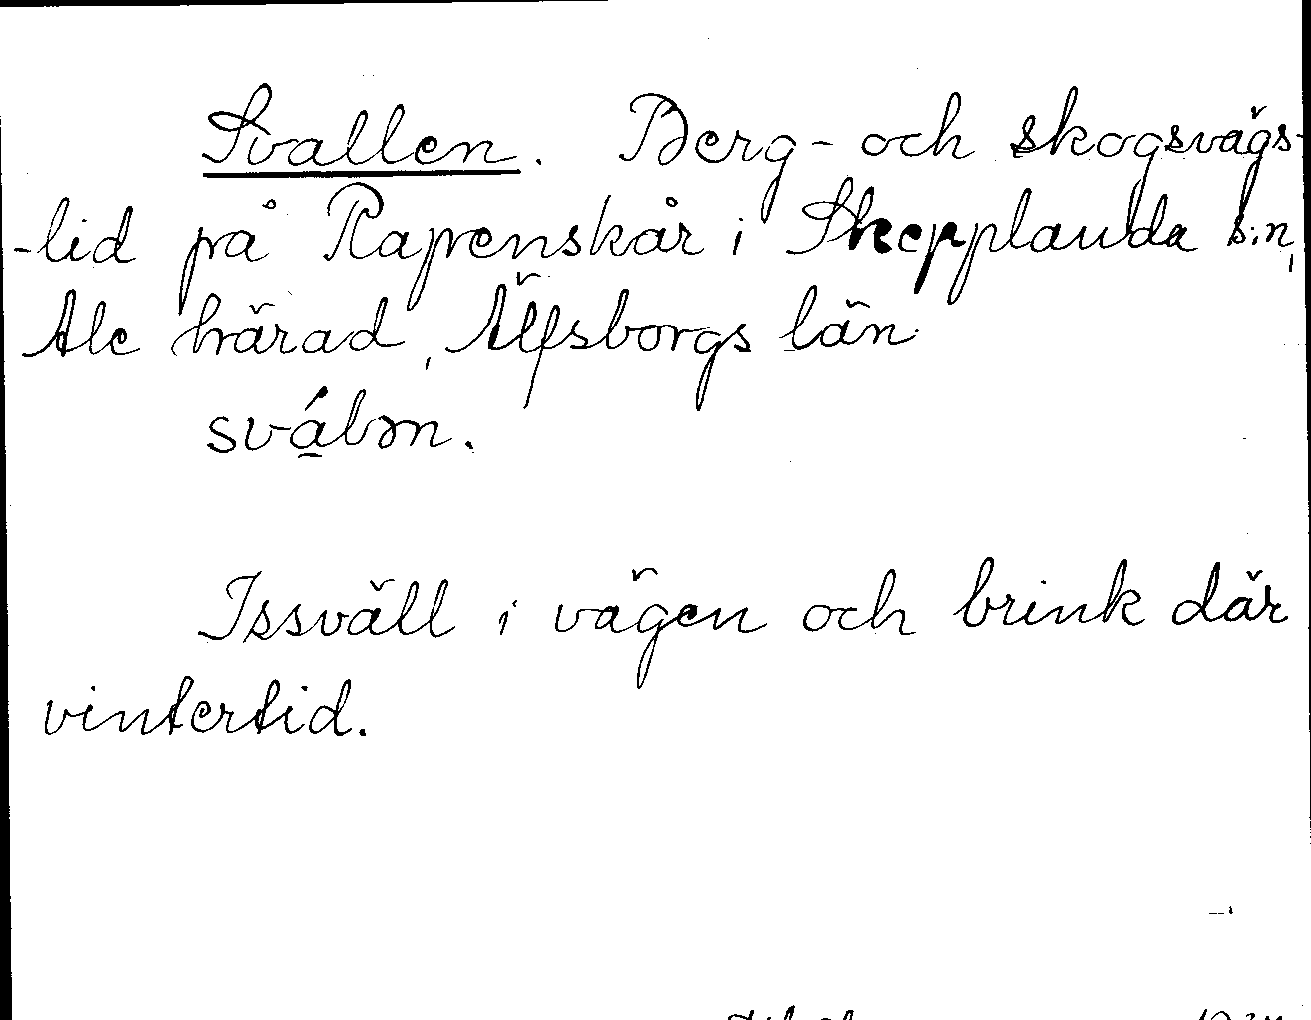 Svallen. Berg- och skogsvägs-
-lid på Rapenskår i Skepplanda s:n,
Ale härad, Älfsborgs län
Issväll i vägen och brink där
vintertid.